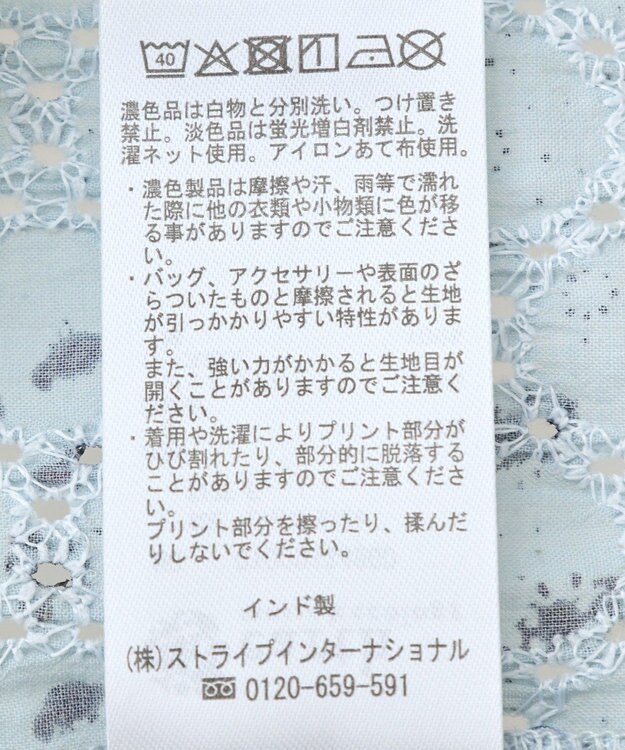 40
濃色品は白物と分別洗い。つけ置き
禁止。淡色品は蛍光増白剤禁止。洗
濯ネット使用。アイロンあて布使用。
・濃色製品は摩擦や汗、雨等で濡れ
た際に他の衣類や小物類に色が移
る事がありますのでご注意くださ
い。
・バッグ、アクセサリーや表面のざ
らついたものと摩擦されると生地
が引っかかりやすい特性がありま
す。
また、強い力がかかると生地目が
開くことがありますのでご注意く
ださい。
・着用や洗濯によりプリント部分が
ひび割れたり、部分的に脱落する
ことがありますのでご注意くださ
い。
プリント部分を擦ったり、揉んだ
りしないでください。
インド製
(株)ストライプインターナショナル
0120-659-591